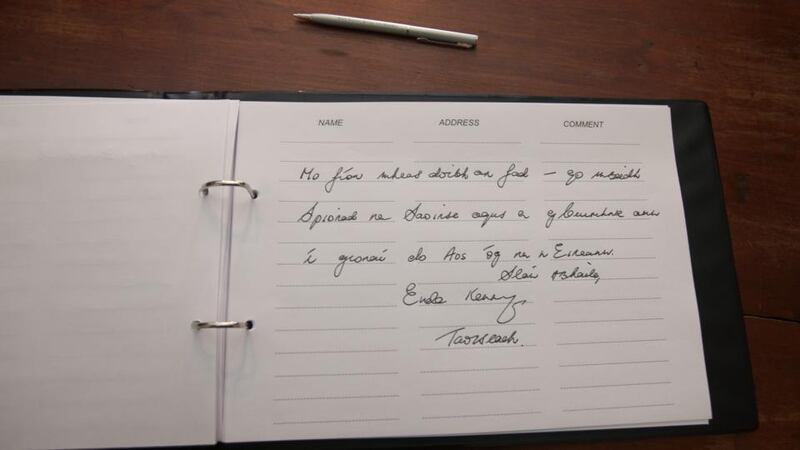 NAME ADDRESS COMMENT
Mo fíor mheas daoibh an fad – go mbeidh
Spiorad na Saoirse agus a gcuimhne
í gconaí do Aos óg na h Éireann.
Slán abhaile,
Enda Kenny
Taoiseach.